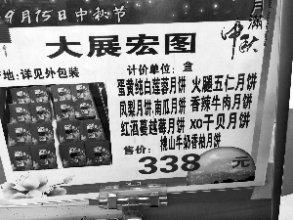 9月15日中秋节
月满中秋
大展宏图
产地:详见外包装
计价单位:盒
蛋黄纯白莲蓉月饼 火腿五仁月饼
凤梨月饼.南瓜月饼 香辣牛肉月饼
红酒蔓越莓月饼 XO干贝月饼
桃山牛奶香柚月饼
售价: 338 元